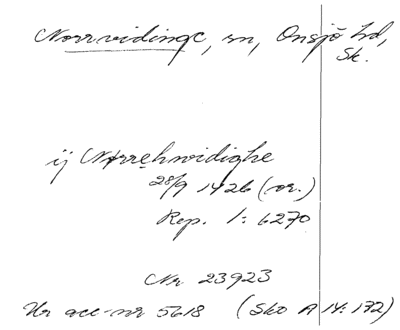 Norrvidinge, sn, Onsjö hd,
Sk.
ij Nørrehwidighe
28/9 1426 (or.)
Rep. 1: 6270
Nr 23923
Ur acc-nr 5618 (Sko A 14: 132)